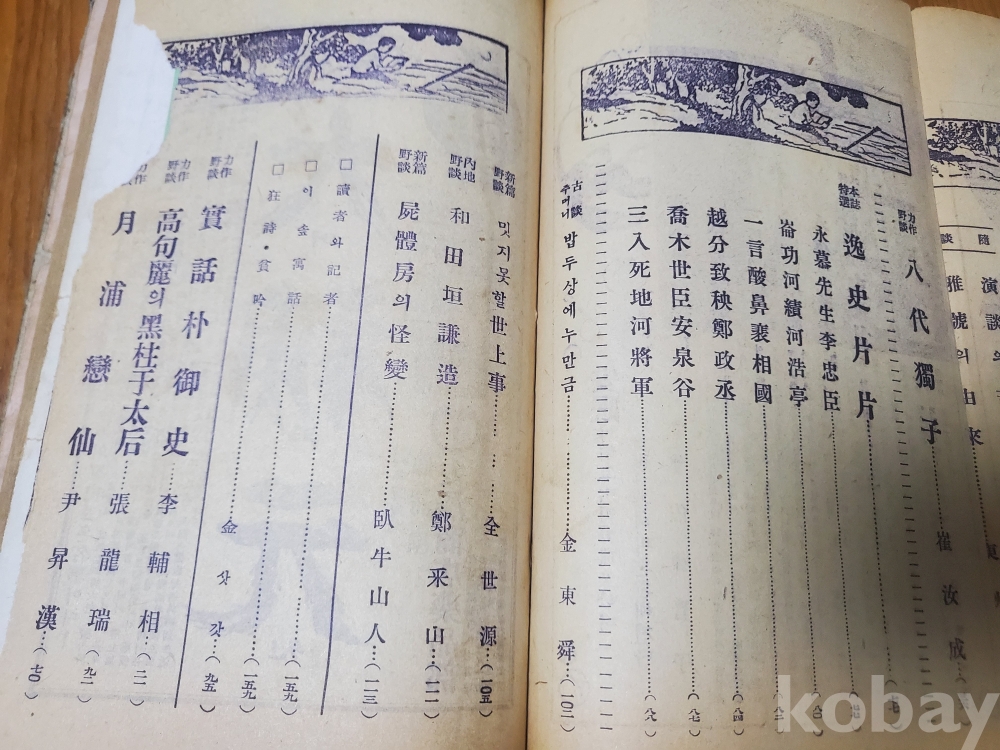 隨
談
演談
雅號의由來
力作
野談 八代獨子 崔汝成
本誌
特選 逸史片片
永慕先生李忠臣
崙功河續河浩亭
一言酸鼻裵相國
越分致秧鄭政丞
喬木世臣安泉谷
三入死地河將軍
古談
주머니 밤두상에누만금 金東舜 (一〇二)
新篇
野談 밋지못할世上事 全世源 (一〇五)
內地
野談 和田垣謙造 鄭釆山 (一一一)
新篇
野談 屍體房의怪變 臥牛山人 (一一三)
□讀者와記者 (一五九)
□이솝寓話 (一五九)
□狂詩・貧吟 金삿갓 (九五)
力作
野談 實話朴御史 李輔相
力作
野談 高句麗의黑柱于太后 張龍瑞
力作
談 月浦戀仙 尹昇漢 (七〇)
kobay